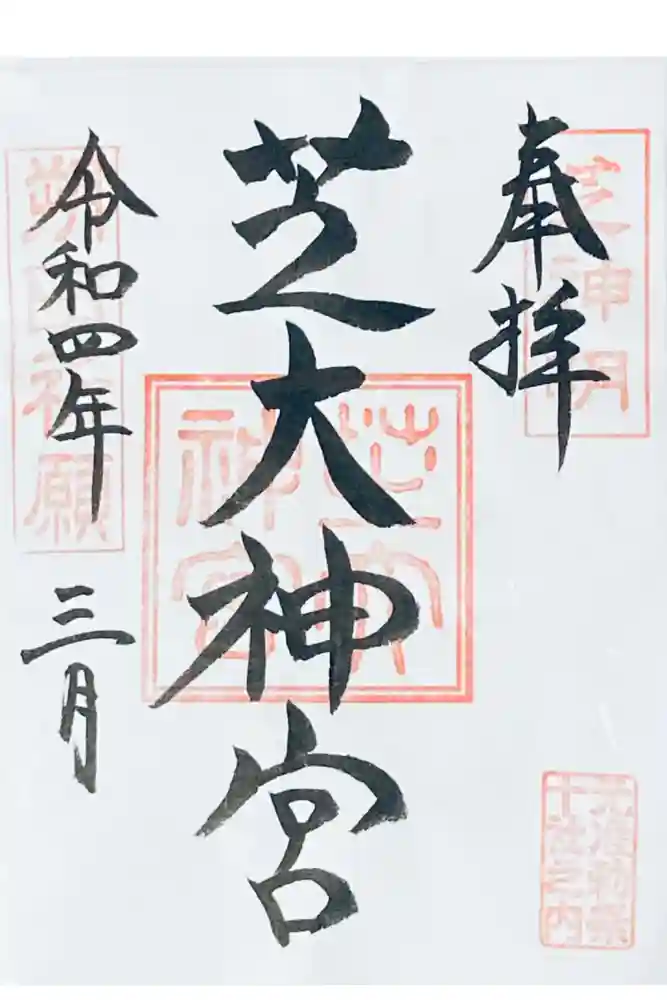 奉拝
芝神明
芝大神宮
芝大神宮
令和四年
三月